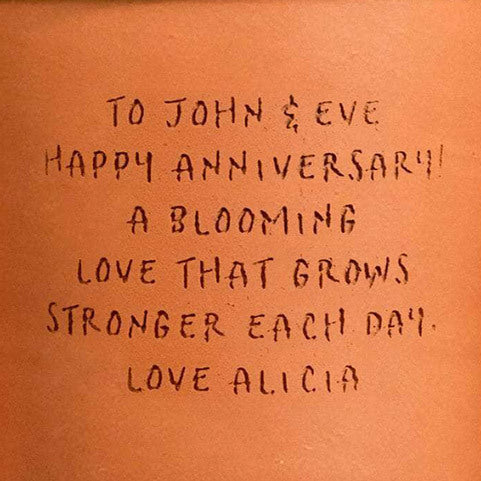 TO JOHN & EVE
HAPPY ANNIVERSARY!
A BLOOMING
LOVE THAT GROWS
STRONGER EACH DAY.
LOVE ALICIA